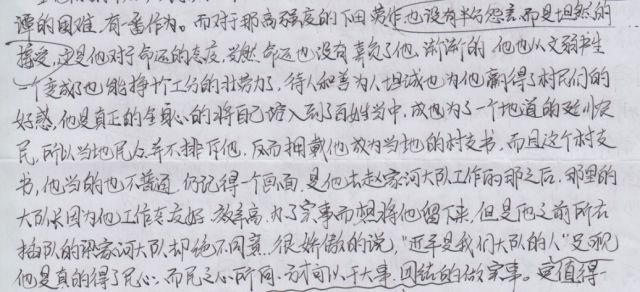 谭的困难,有一番作为。而对于那高强度的下田劳作也没有半分怨言而是坦然的
接受,这是他对于命运的态度,当然命运也没有辜负了他,渐渐的,他也从文弱书生
一个变成了也能挣十个工分的壮劳力了,待人和善为人坦诚也为他赢得了村民们的
好感,他是真正的全身心的将自己投入到了百姓当中,成为了一个地道的延川农
民,所以当地民众并不排斥他,反而拥戴他成为当地的村支书,而且这个村支
书,他当的也不普通,仍记得一个画面,是他去赵家河大队工作的那之后,那里的
大队长因为他工作态度好,效率高,为了实事而想将他留下来,但是他之前所在
插队的梁家河大队却绝不同意,很娇傲的说,"近平是我们大队的人"足视
他是真的得了民心,而民之心所向,方才可以干大事,团结的做实事。更值得一